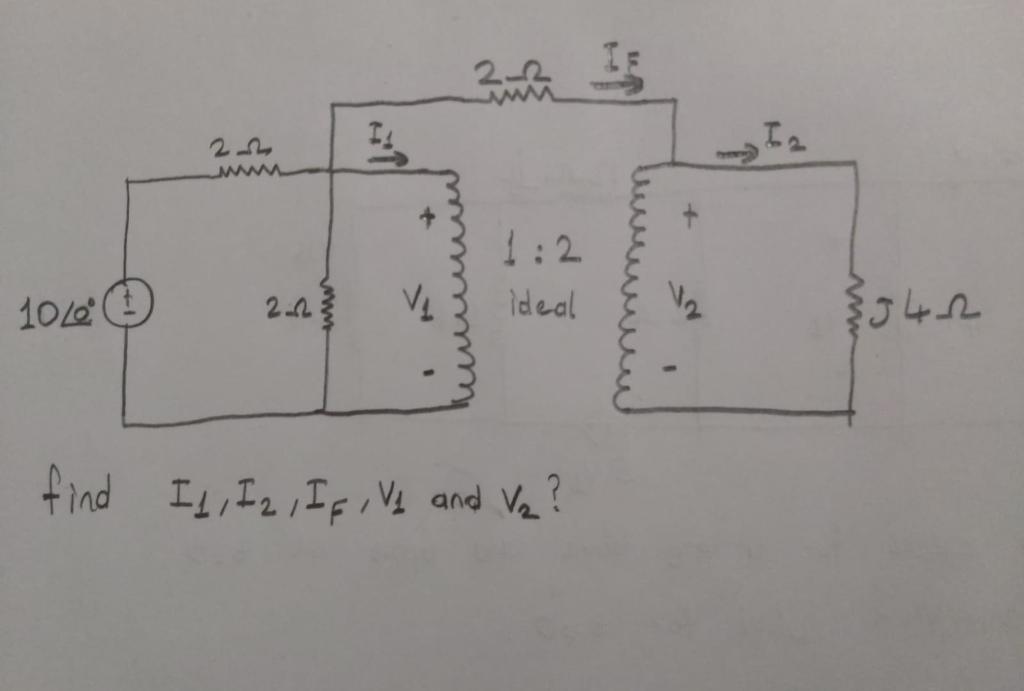 2Ω
I_F
2Ω
I₁
I₂
10∠0°
+
-
2Ω
+
V₁
-
1 : 2
ideal
+
V₂
-
J4Ω
find I₁, I₂, I_F, V₁ and V₂?